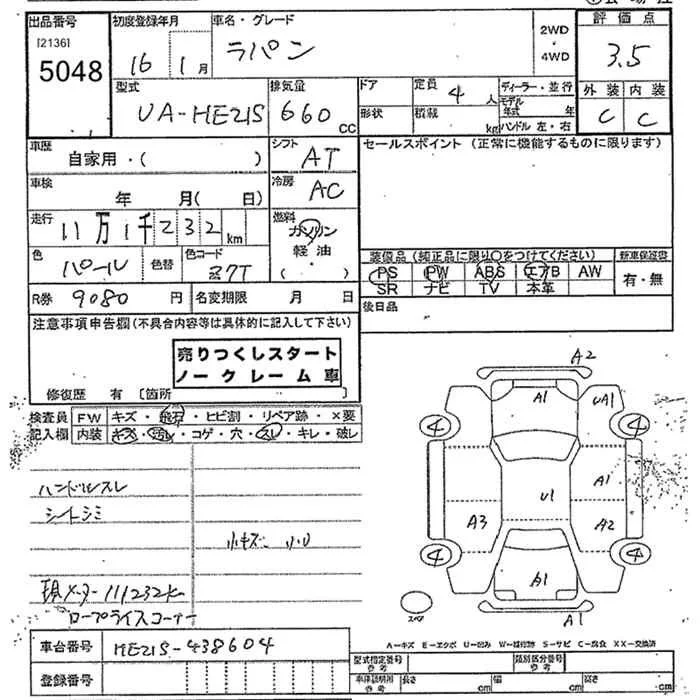 出品番号 初度登録年月 車名・グレード 2WD・4WD 評価点
[2136]
5048 16 1月 ラパン 3.5
型式 排気量 ドア 定員 4人 ディーラー・並行 外装 内装
UA-HE21S 660cc 形状 積載 kg モデル年式 年 ハンドル 左・右 C C
車歴 シフト セールスポイント (正常に機能するものに限ります)
自家用・( ) AT
車検 年 月( 日) 冷房 AC
走行 11万1千232km 燃料 ガソリン
色 色替 色コード 軽油
パール Z7T ( ・ )
装備品(純正品に限り○をつけてください) 新車保証書
PS PW ABS エアB AW 有・無
SR ナビ TV 本革
R券 9080円 名変期限 月 日 後日品
注意事項申告欄(不具合内容等は具体的に記入して下さい)
売りつくしスタート
ノークレーム車
修復歴 有 [箇所 ]
検査員 FW キズ・飛石・ヒビ割・リペア跡・×要
記入欄 内装 キズ・汚レ・コゲ・穴・スレ・キレ・破レ
ハンドルスレ
シートシミ
小キズ 小U
現メーター111232km
ロープライスコーナー
A2
A1 UA1
4 4
A1
U1
A3 A2
4 4
A1
スペア A1
A-キズ E-エクボ U-凹み W-補修跡 S-サビ C-腐食 XX-交換済
車台番号 HE21S-438604
型式指定番号 参考 類別区分番号 参考
登録番号 車体説明用 参考 長さ cm 幅 cm 高さ cm